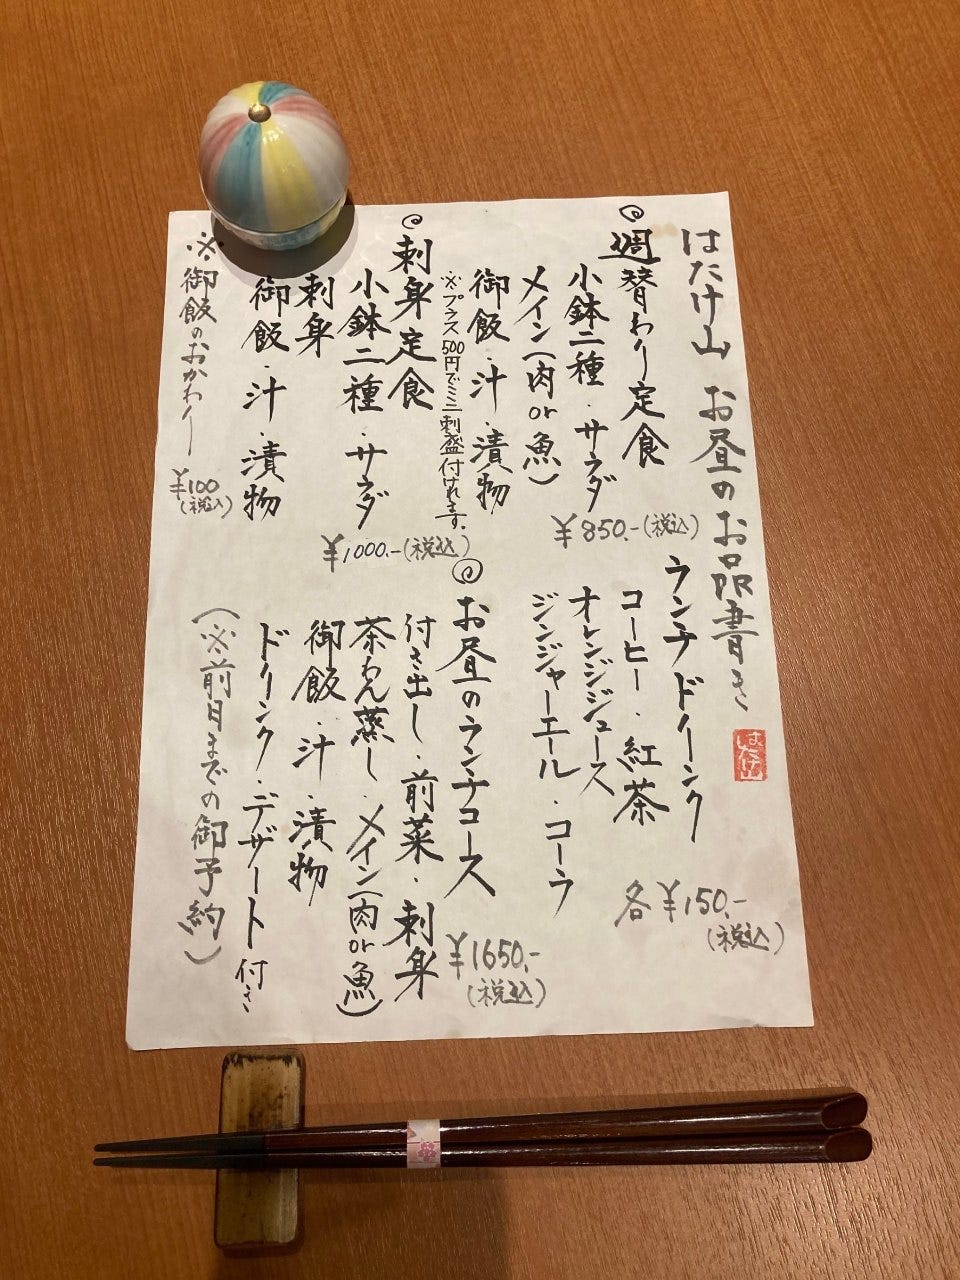 はたけ山 お昼のお品書き
はたけ山
週替わり定食
小鉢二種・サラダ
メイン(肉or魚)
御飯・汁・漬物
※プラス500円でミニ刺盛付けれます。
¥850.-(税込)
刺身定食
小鉢二種 サラダ
刺身
御飯・汁・漬物
¥1000.-(税込)
※御飯のおかわり
¥100
(税込)
ランチドリンク
コーヒー・紅茶
オレンジジュース
ジンジャーエール・コーラ
各¥150.-
(税込)
お昼のランチコース
付き出し・前菜・刺身
茶わん蒸し・メイン(肉or魚)
御飯・汁・漬物
ドリンク・デザート付き
¥1650.-
(税込)
(※前日までの御予約)